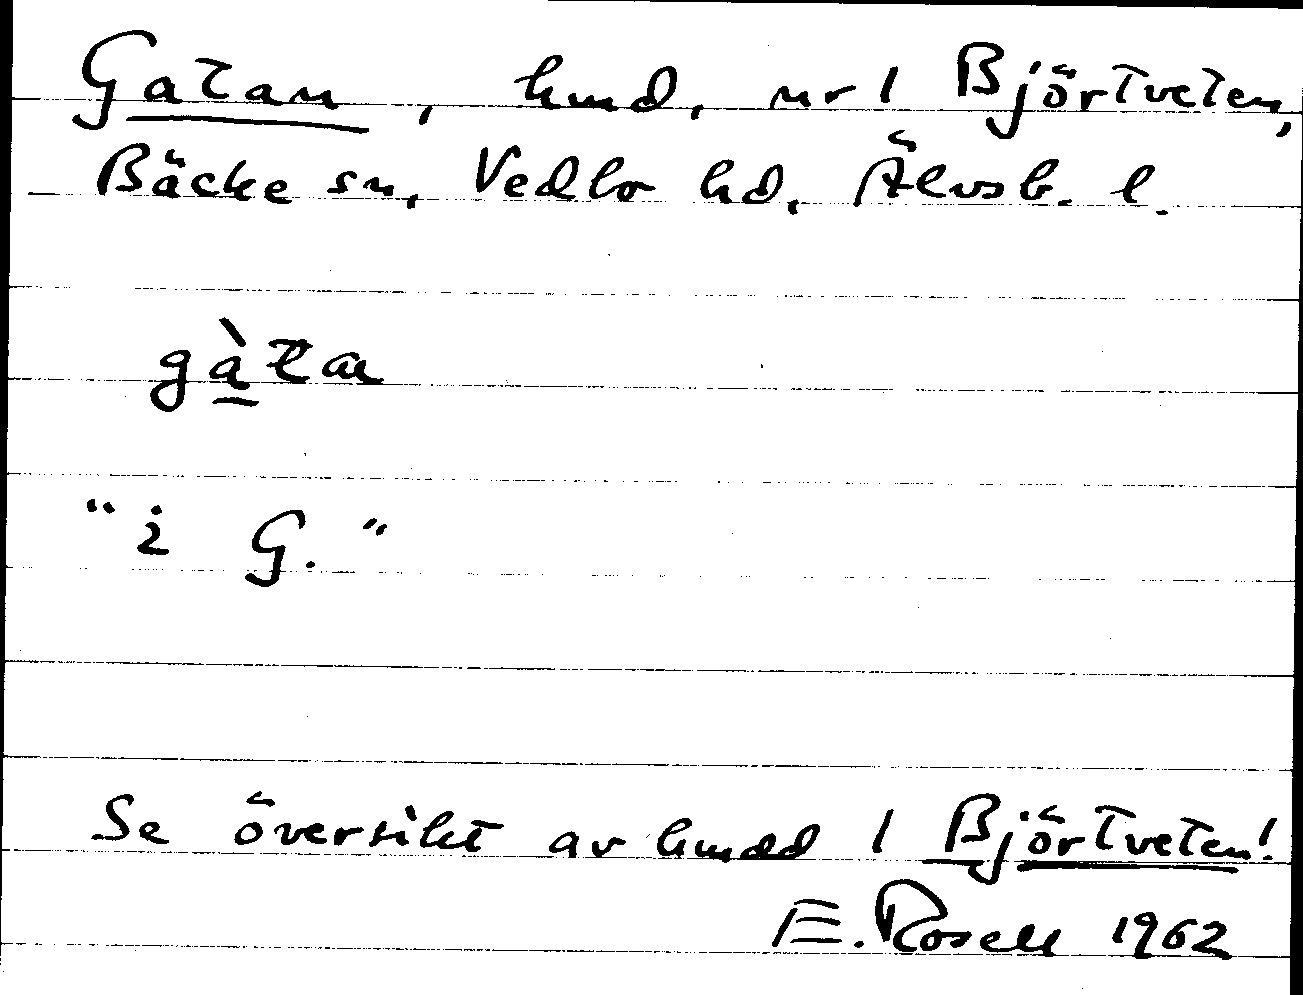 Gatan, hmd, nr 1 Björtveten,
Bäcke sn, Vedbo hd, Älvsb. l.
gàta
"i G."
Se översikt av hmdd 1 Björtveten!
E. Rosell 1962